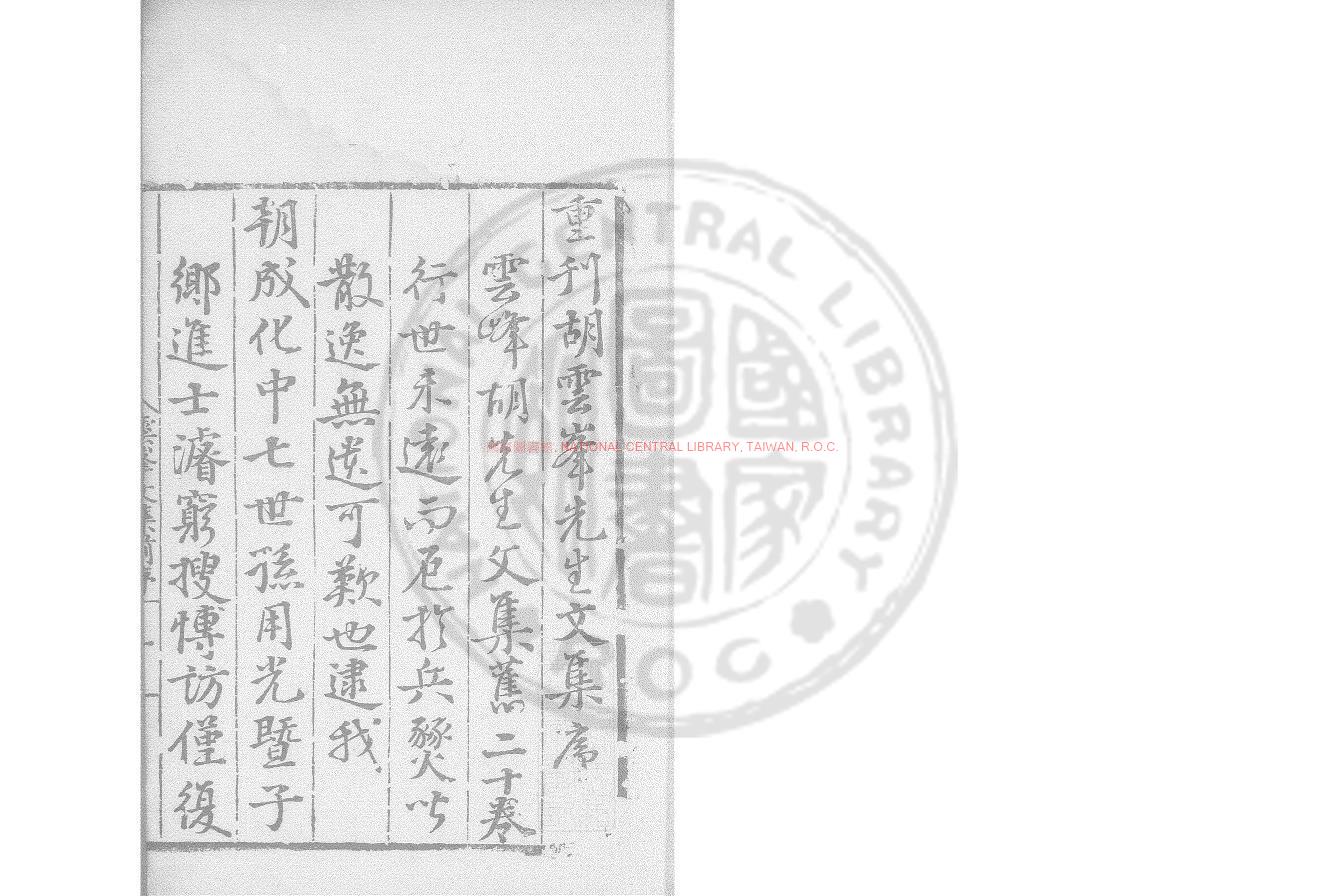 重刊胡雲峯先生文集序
雲峰胡先生文集舊二十卷
行世未遠而厄於兵燹呰
散逸無遺可歎也逮我
朝成化中七世孫用光暨子
鄉進士濬窮搜博訪僅復
NATIONAL CENTRAL LIBRARY, TAIWAN, R.O.C.
CENTRAL LIBRARY
ROC